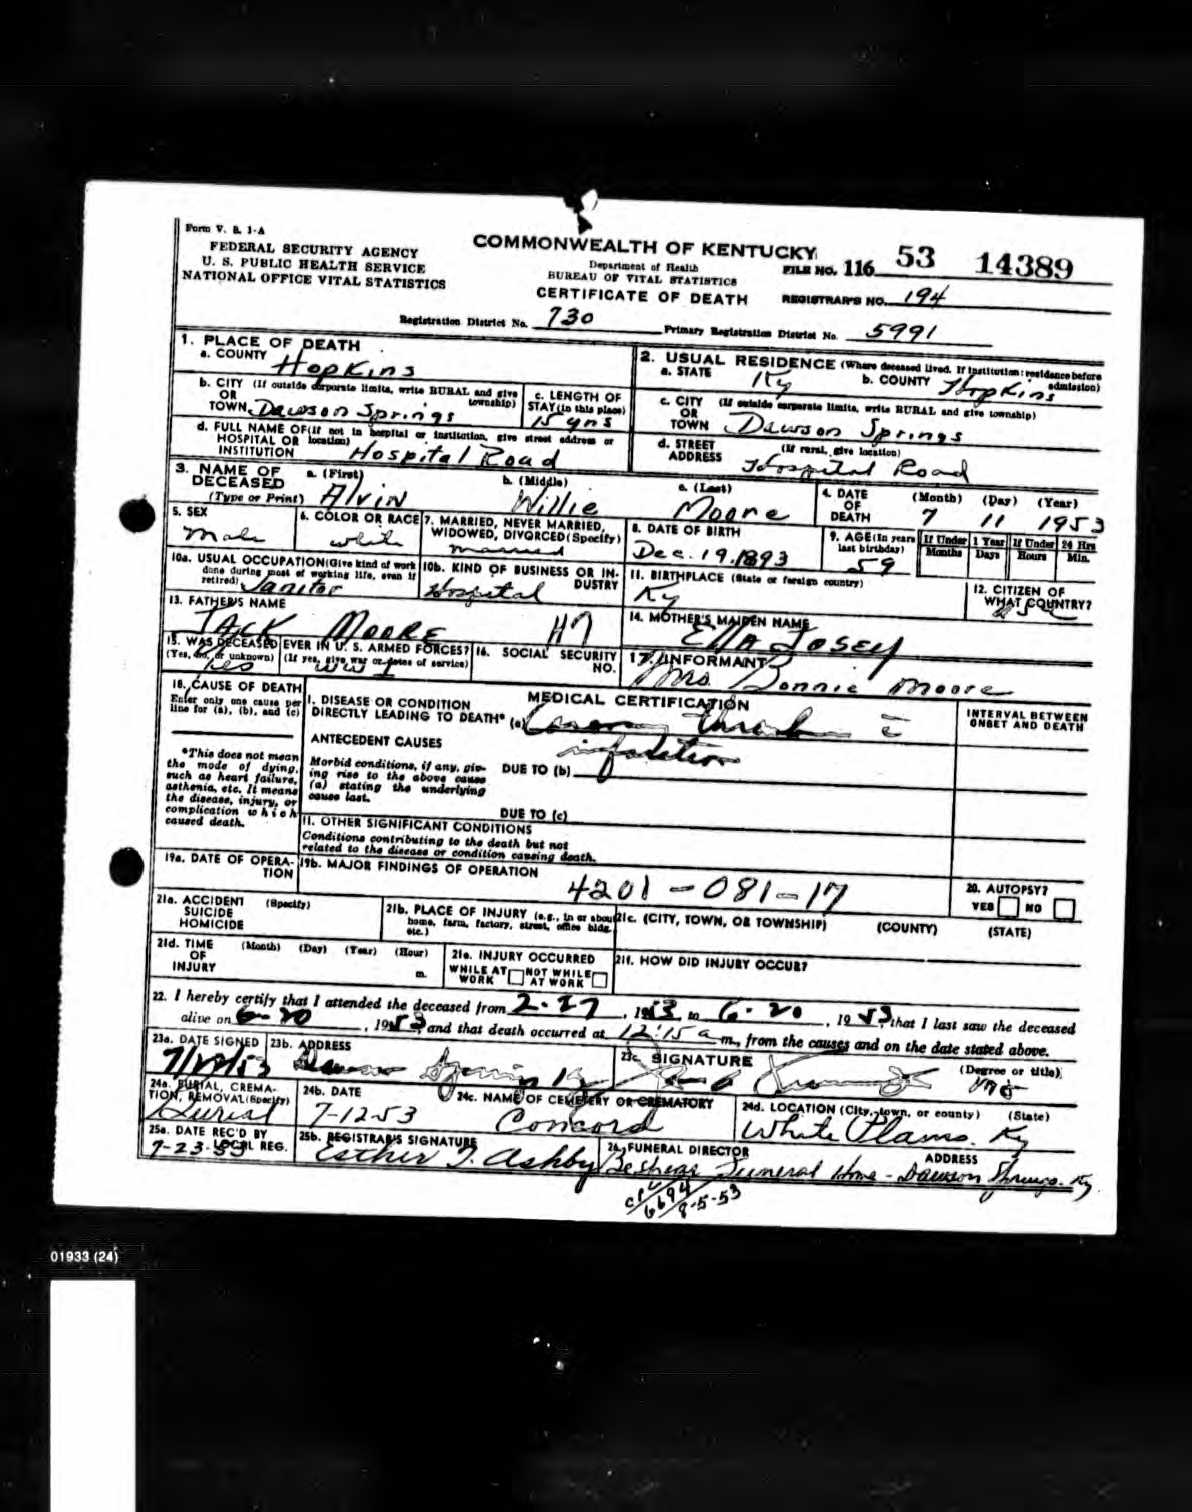 Form V. S. 1-A
FEDERAL SECURITY AGENCY
U. S. PUBLIC HEALTH SERVICE
NATIONAL OFFICE VITAL STATISTICS
COMMONWEALTH OF KENTUCKY
Department of Health
BUREAU OF VITAL STATISTICS
CERTIFICATE OF DEATH
FILE NO. 116 53 14389
REGISTRAR'S NO. 194
Registration District No. 730
Primary Registration District No. 5991
1. PLACE OF DEATH
a. COUNTY Hopkins
b. CITY (If outside corporate limits, write RURAL and give township)
OR
TOWN Dawson Springs
c. LENGTH OF
STAY (in this place)
15 yrs
d. FULL NAME OF (If not in hospital or institution, give street address or location)
HOSPITAL OR
INSTITUTION Hospital Road
2. USUAL RESIDENCE (Where deceased lived. If institution: residence before admission)
a. STATE Ky
b. COUNTY Hopkins
c. CITY (If outside corporate limits, write RURAL and give township)
OR
TOWN Dawson Springs
d. STREET (If rural, give location)
ADDRESS Hospital Road
3. NAME OF
DECEASED
(Type or Print)
a. (First) Alvin
b. (Middle) Willie
c. (Last) Moore
4. DATE
OF
DEATH
(Month) (Day) (Year)
7 11 1953
5. SEX
Male
6. COLOR OR RACE
White
7. MARRIED, NEVER MARRIED,
WIDOWED, DIVORCED (Specify)
married
8. DATE OF BIRTH
Dec. 19, 1893
9. AGE (In years
last birthday)
59
If Under 1 Year
Months Days
If Under 24 Hrs
Hours Min.
10a. USUAL OCCUPATION (Give kind of work
done during most of working life, even if
retired) Janitor
10b. KIND OF BUSINESS OR IN-
DUSTRY
Hospital
11. BIRTHPLACE (State or foreign country)
Ky
12. CITIZEN OF
WHAT COUNTRY?
13. FATHER'S NAME
JACK MOORE
14. MOTHER'S MAIDEN NAME
Ella Josey
15. WAS DECEASED EVER IN U. S. ARMED FORCES?
(Yes, no, or unknown) (If yes, give war or dates of service)
Yes WW I
16. SOCIAL SECURITY
NO.
17. INFORMANT
Mrs Donnie Moore
18. CAUSE OF DEATH
Enter only one cause per
line for (a), (b), and (c)
*This does not mean
the mode of dying,
such as heart failure,
asthenia, etc. It means
the disease, injury, or
complication which
caused death.
MEDICAL CERTIFICATION
I. DISEASE OR CONDITION
DIRECTLY LEADING TO DEATH* (a) Coronary
ANTECEDENT CAUSES
Morbid conditions, if any, giv-
ing rise to the above cause
(a) stating the underlying
cause last.
DUE TO (b)
DUE TO (c)
INTERVAL BETWEEN
ONSET AND DEATH
II. OTHER SIGNIFICANT CONDITIONS
Conditions contributing to the death but not
related to the disease or condition causing death.
19a. DATE OF OPERA-
TION
19b. MAJOR FINDINGS OF OPERATION
4201-081-17
20. AUTOPSY?
YES NO
21a. ACCIDENT (Specify)
SUICIDE
HOMICIDE
21b. PLACE OF INJURY (e.g., in or about
home, farm, factory, street, office bldg.
etc.)
21c. (CITY, TOWN, OR TOWNSHIP) (COUNTY) (STATE)
21d. TIME (Month) (Day) (Year) (Hour)
OF
INJURY m.
21e. INJURY OCCURRED
WHILE AT NOT WHILE
WORK AT WORK
21f. HOW DID INJURY OCCUR?
22. I hereby certify that I attended the deceased from 2-27, 1953, to 6-20, 1953, that I last saw the deceased
alive on 6-20, 1953, and that death occurred at 12:15 a m., from the causes and on the date stated above.
23a. DATE SIGNED
23b. ADDRESS
Dawson Springs Ky
23c. SIGNATURE
(Degree or title)
24a. BURIAL, CREMA-
TION, REMOVAL (Specify)
Burial
24b. DATE
7-12-53
24c. NAME OF CEMETERY OR CREMATORY
Concord
24d. LOCATION (City, town, or county) (State)
White Plains. Ky
25a. DATE REC'D BY
LOCAL REG.
7-23-53
25b. REGISTRAR'S SIGNATURE
Esther T. Ashby
26. FUNERAL DIRECTOR ADDRESS
Beshear Funeral Home - Dawson Springs. Ky
6694
8-5-53
01933 (24)